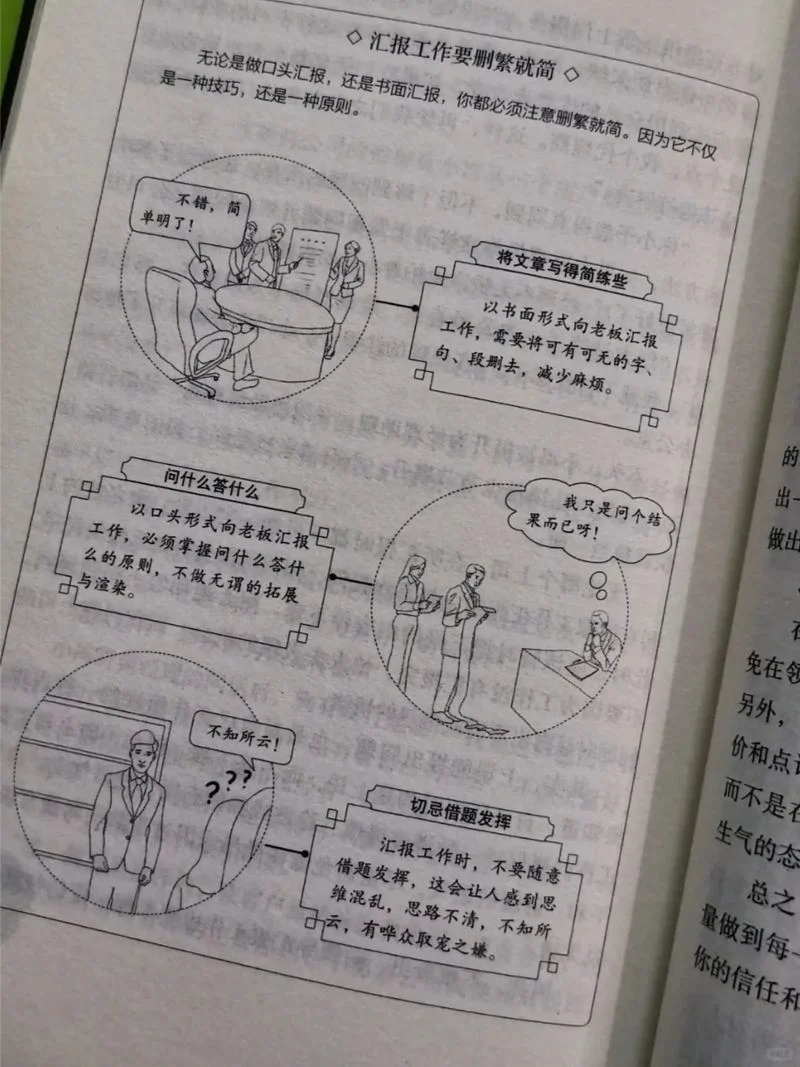 ◇ 汇报工作要删繁就简 ◇
无论是做口头汇报，还是书面汇报，你都必须注意删繁就简。因为它不仅
是一种技巧，还是一种原则。
不错，简
单明了！
将文章写得简练些
以书面形式向老板汇报
工作，需要将可有可无的字、
句、段删去，减少麻烦。
问什么答什么
以口头形式向老板汇报
工作，必须掌握问什么答什
么的原则，不做无谓的拓展
与渲染。
我只是问个结
果而已呀！
不知所云！
???
切忌借题发挥
汇报工作时，不要随意
借题发挥，这会让人感到思
维混乱，思路不清，不知所
云，有哗众取宠之嫌。
的
出一
做出
在
免在领
另外，
价和点评
而不是在
生气的态
总之
量做到每一
你的信任和